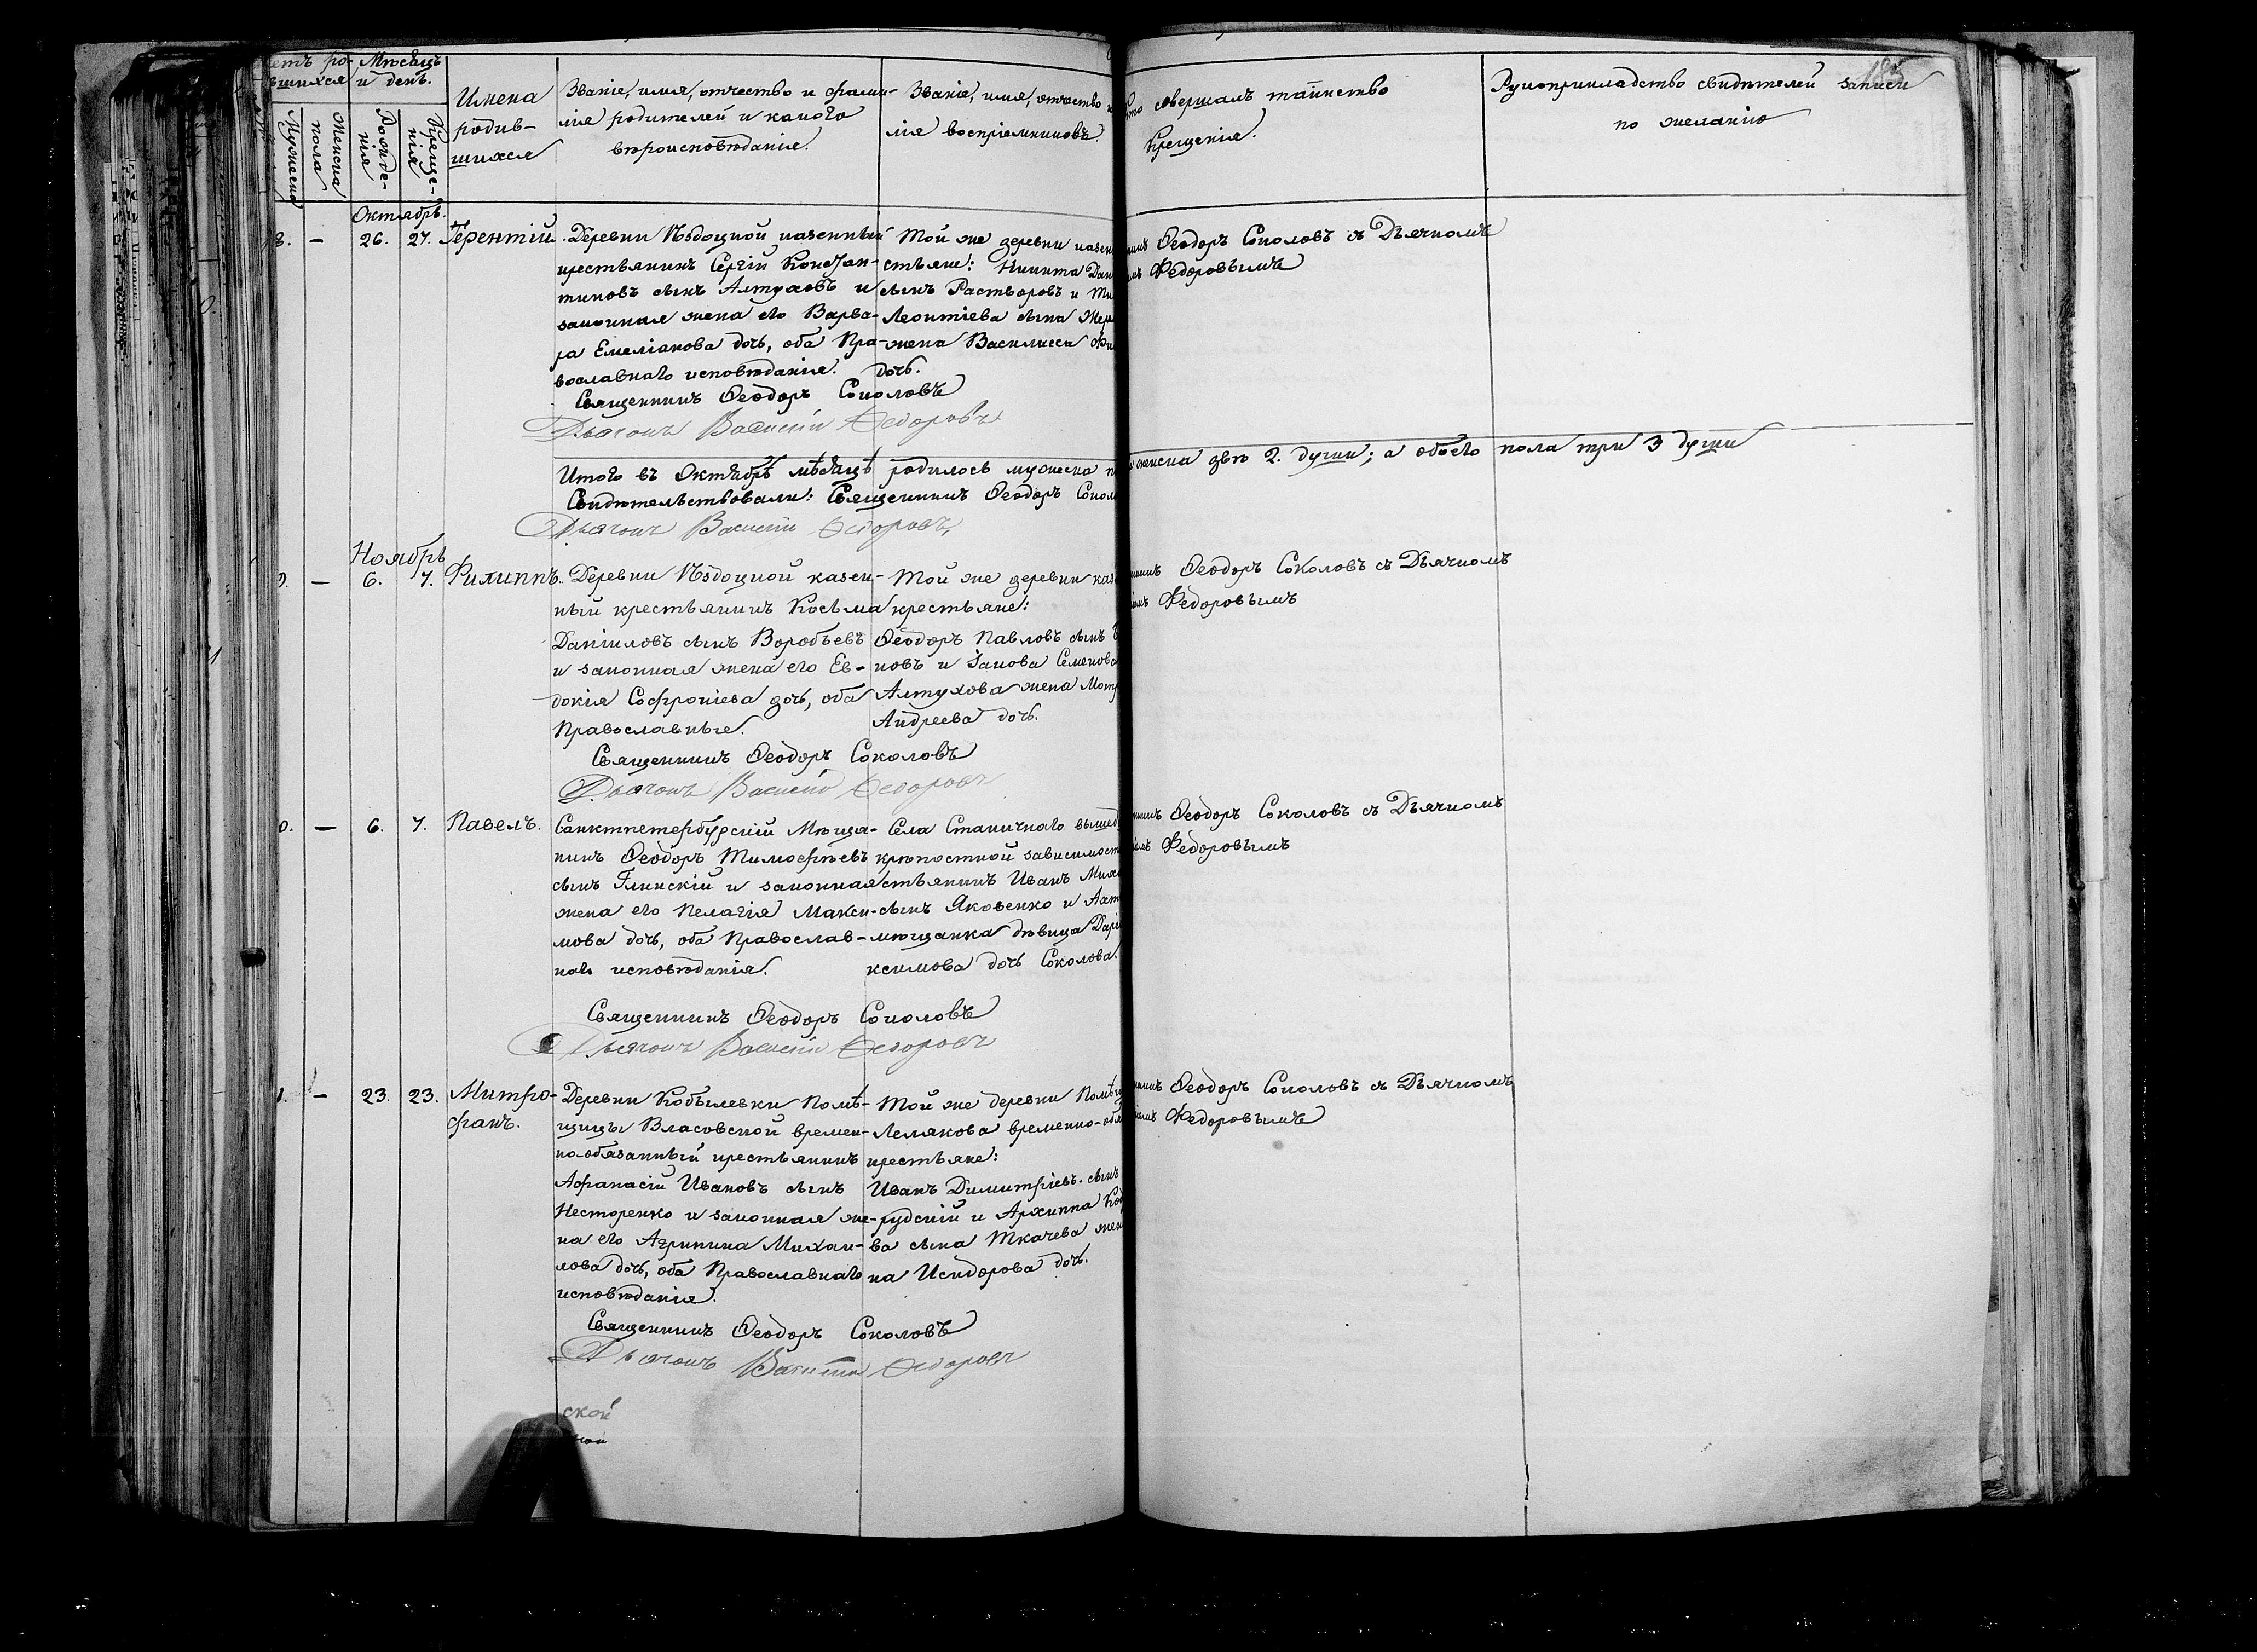 Мѣсяцъ
и день.
Мужеска
Женска
пола
Рожде-
нія
Креще-
нія
Имена
родив-
шихся
Званіе, имя, отчество и фами-
лія родителей и какого
вѣроисповѣданія.
Званіе, имя, отчество и
лія воспріемниковъ.
совершалъ таинство
Крещенія.
Рукоприкладство свидѣтелей записи
по желанію
Октябрь.
8. — 26. 27. Терентій.
Деревни Ѣздоцкой казенный
крестьянинъ Сергій Констан-
тиновъ сынъ Алтуховъ и
законная жена его Варва-
ра Емеліанова дочь, оба Пра-
вославнаго исповѣданія.
Той же деревни
стьяне: Никита
сынъ Растворовъ и
Леонтіева сына
жена Василисса
дочь.
Феодоръ Соколовъ съ Дьячкомъ
Федоровымъ
Священникъ Ѳеодоръ Соколовъ
Дьячокъ Василій Ѳедоровъ
Итого въ Октябрѣ мѣсяцѣ родилось мужеска
женска двѣ 2. души; а обоего пола три 3 души
Свидѣтельствовали: Священникъ Ѳеодоръ
Дьячокъ Василій Ѳедоровъ
Ноябрь
— 6. 7. Филиппъ.
Деревни Ѣздоцкой казен-
ный крестьянинъ Косьма
Даніиловъ сынъ Воробьевъ
и законная жена его Ев-
докія Софроніева дочь, оба
Православные.
Той же деревни
крестьяне:
Ѳеодоръ Павловъ сынъ
новъ и Іакова Семенова
Алтухова жена
Андреева дочь.
Ѳеодоръ Соколовъ съ Дьячкомъ
Федоровымъ
Священникъ Ѳеодоръ Соколовъ
Дьячокъ Василій Ѳедоровъ
0. — 6. 7. Павелъ.
Санктпетербургскій Мѣща-
нинъ Ѳеодоръ Тимофѣевъ
сынъ Глинскій и законная
жена его Пелагія Макси-
мова дочь, оба Православ-
наго исповѣданія.
Села Станичнаго
крѣпостной
стьянинъ Иванъ
сынъ Яковенко и
мѣщанка дѣвица
ксимова дочь Соколова.
Ѳеодоръ Соколовъ съ Дьячкомъ
Федоровымъ
Священникъ Ѳеодоръ Соколовъ
Дьячокъ Василій Ѳедоровъ
— 23. 23. Митро-
фанъ.
Деревни Кобылевки Помѣ-
щицы Власовской времен-
но-обязанный крестьянинъ
Афанасій Ивановъ сынъ
Несторенко и законная же-
на его Агрипина Михаи-
лова дочь, оба Православнаго
исповѣданія.
Той же деревни
Лелякова
крестьяне:
Иванъ Димитріевъ сынъ
рудскій и Архиппа
ва сына Ткачева
на Исидорова дочь.
Ѳеодоръ Соколовъ съ Дьячкомъ
Федоровымъ
Священникъ Ѳеодоръ Соколовъ
Дьячокъ Василій Ѳедоровъ
ской